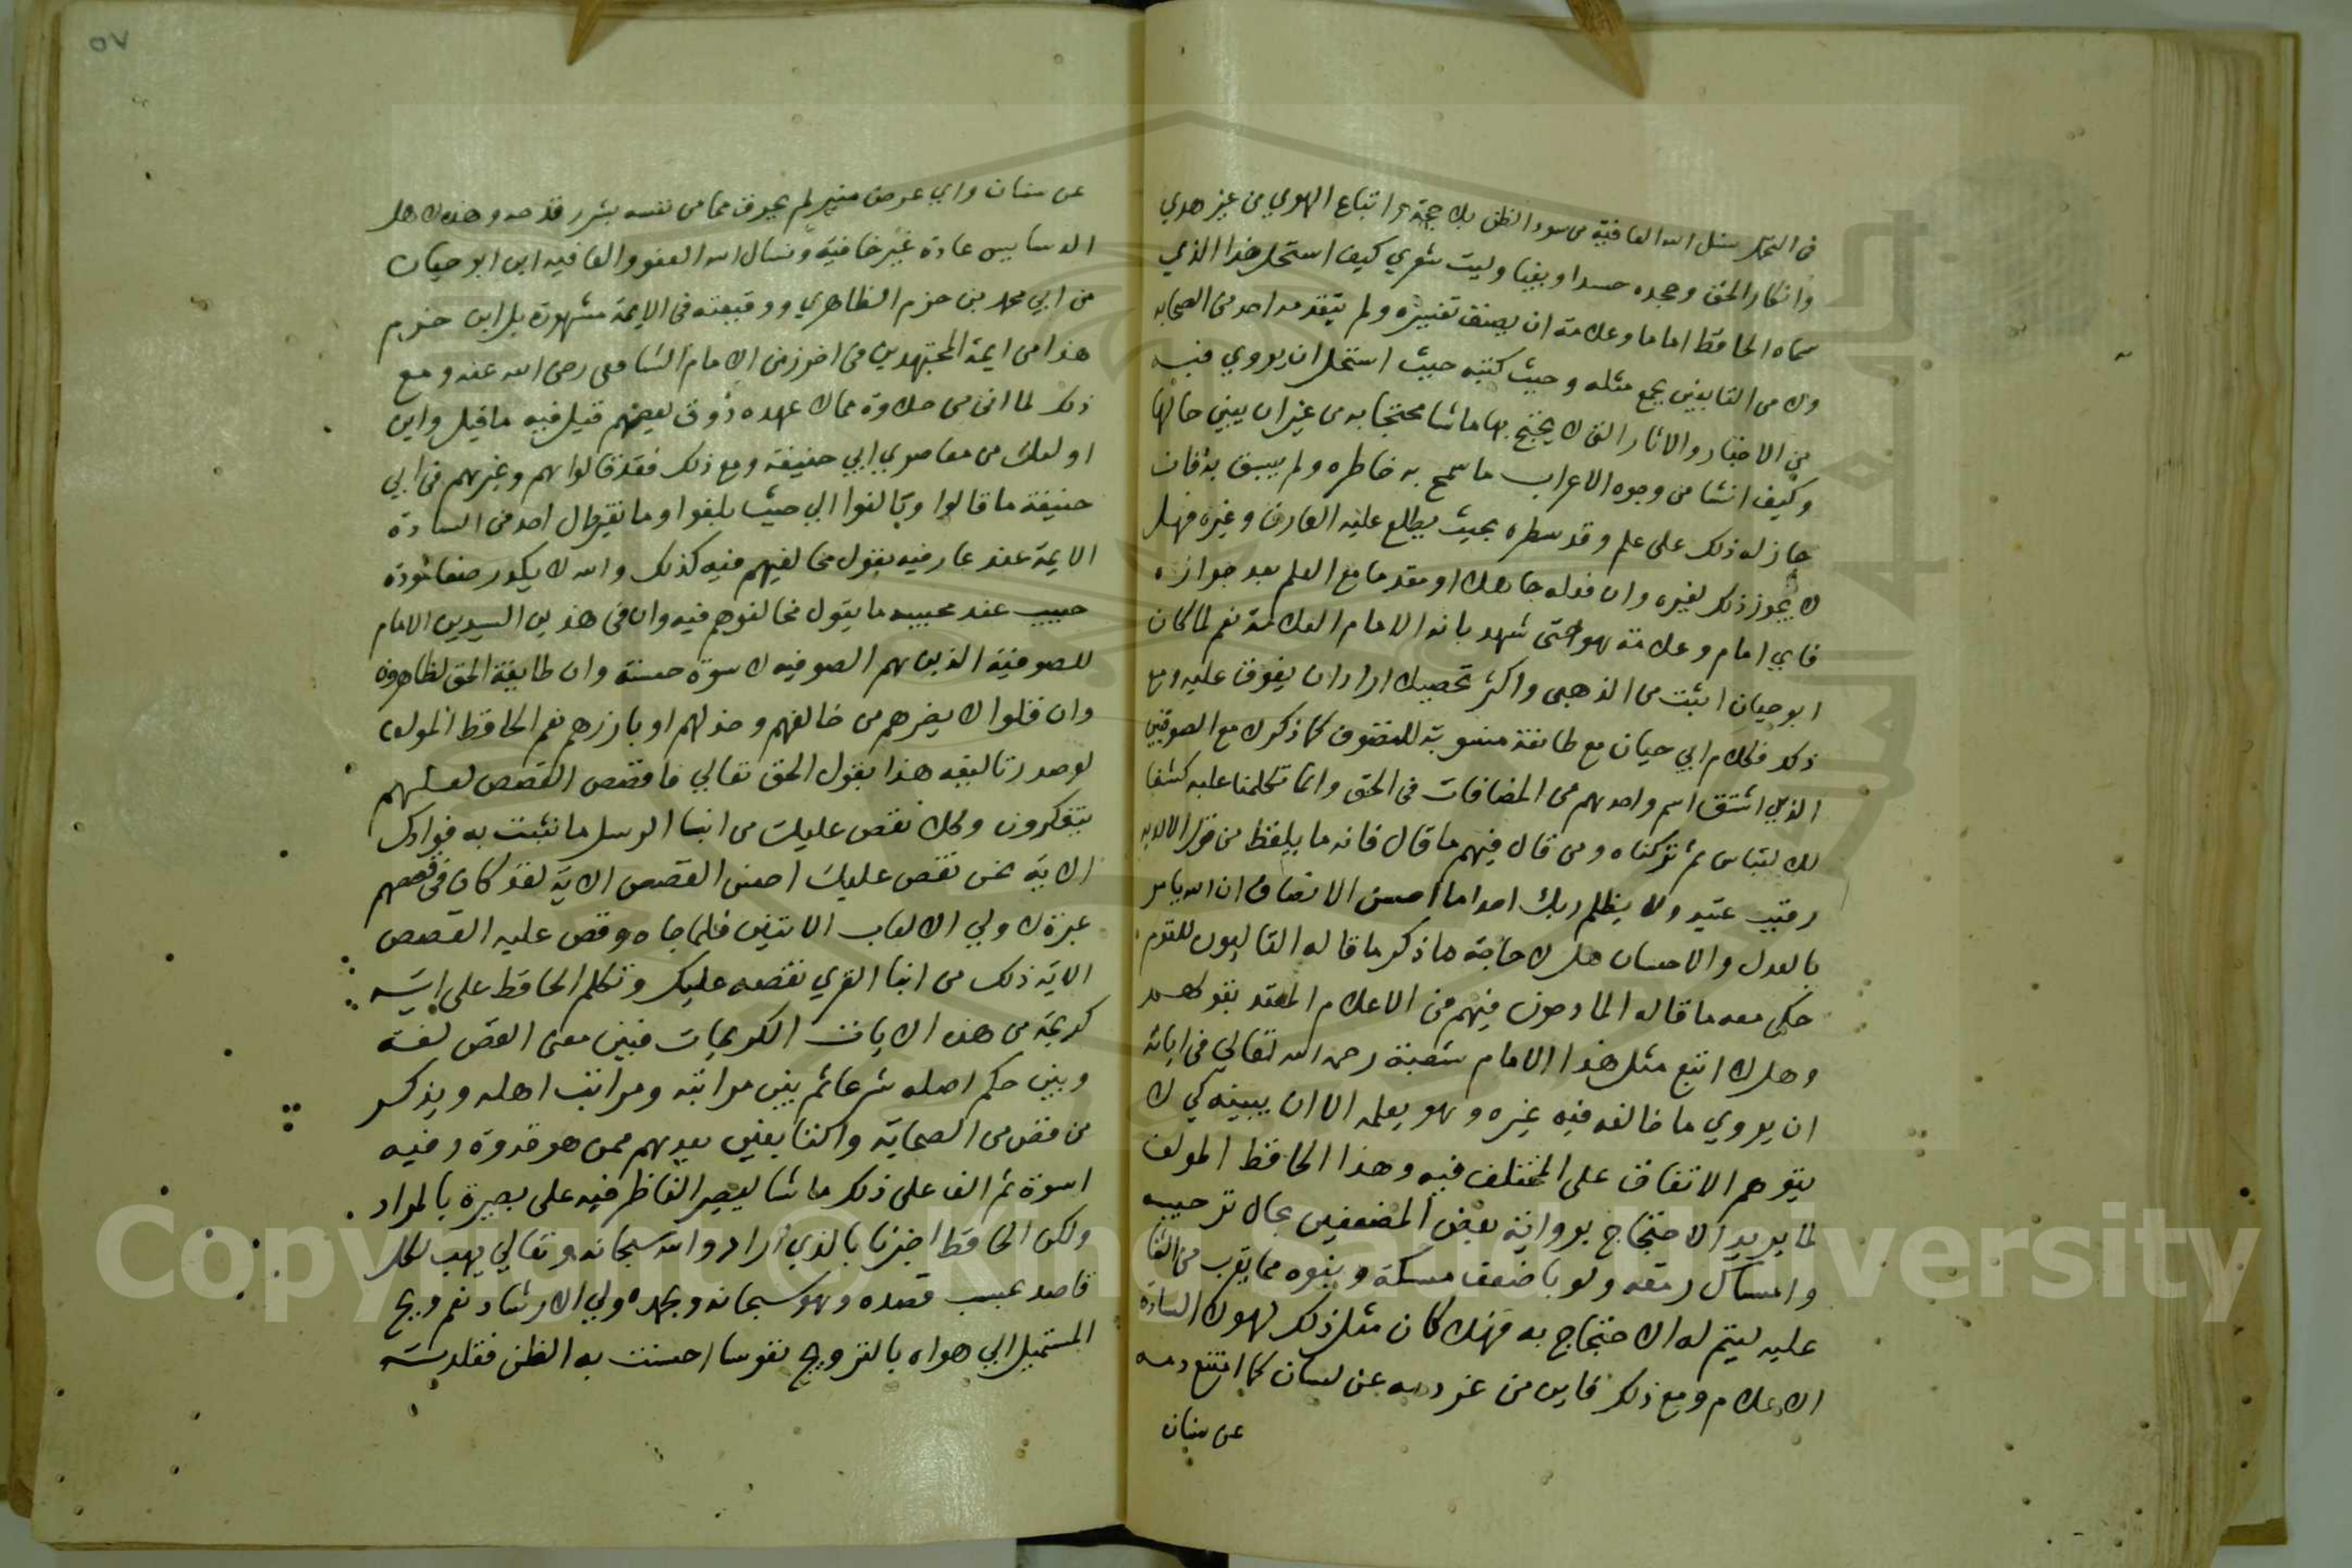 في التمحل نسئل الله العافية من سوء الظن بلا حجة و اتباع الهوي من غير هدي
وانكار الحق وجحده حسدا وبغيا وليت شعري كيف استحل هذا الذي
سماه الحافظ اماما وعلامة ان يصنف تفسيره ولم يتقدمه احد من الصحابه
ولا من التابعين بجمع مثله وحيث كتبه حيث استحل ان يروي فيه
من الاخبار والاثار التي لا يحتج بها ماشا محتجا به من غير ان يبين حالها
وكيف انشا من وجوه الاعراب ما سمح به خاطره ولم يسبق به فان
جاز له ذلك على علم وقد سطره بحيث يطلع عليه العارف وغيره فهل
لا يجوز ذلك لغيره وان فعله جاهلا او مقدما مع العلم بعد جوازه
فاي امام وعلامة هو حتى شهد بانه الامام العلامة نعم لما كان
ابو حيان اثبت من الذهبي واكثر تحصيلا اراد ان يفوق عليه ومع
ذلك فكلام ابي حيان مع طائفة منسوبة للتصوف كما ذكر لا مع الصوفيين
الذين اشتق اسم واحدهم من المصافات في الحق وانما تكلمنا عليه كشفا
للالتباس ثم تركناه ومن قال فيهم ما قال فانه ما يلفظ من قول الا لديه
رقيب عتيد ولا يظلم ربك احدا ما احسن الانصاف ان الله يامر
بالعدل والاحسان هل لا حاجة ما ذكر ما قاله القاليون للقوم
حكى معه ما قاله المادحون فيهم من الاعلام المعتد بقولهم
وهل لا اتبع مثل هذا الامام شعبة رحمه الله تعالي في ابائه
ان يروي ما خالفه فيه غيره وهو يعلمه الا ان يبينه كي لا
يتوهم الاتفاق على المختلف فيه وهذا الحافظ المولف
لما يريد الاحتجاج بروايته بعض المضعفين بحال ترحيبه
وامساك رمقه ولو باضعف مسكة وينوه مما يقرب من الثنا
عليه ليتم له الاحتجاج به فهلا كان مثل ذلك لهولا السادة
الاعلام ومع ذلك فاين من عن لسان كما امتنع دمه
عن سنان
٥٧
عن سنان واي عرض منير لم يحرق مما من نفسه بشرر قدحه وهذه لاهل
الدسايس عادة غير خافية ونسال الله العفو والعافيه اين ابو حيان
من ابي محمد بن حزم الظاهري ووقيعته في الايمة مشهورة بل اين حزم
هذا من ايمة المجتهدين من اخرز من الامام الشافعي رضي الله عنه ومع
ذلك لما اتى من حلاوة مما لا عهده ذوق بعضهم قيل فيه ما قيل واين
اولئك من معاصري ابي حنيفة ومع ذلك فقد قالوا هم وغيرهم في ابي
حنيفة ما قالوا وبالغوا الي حيث بلغوا وما تغير حال احد من السادة
الايمة عند عارفيه بقول مخالفيهم فيه كذلك والله لا يكدر صفا مودة
حبيب عند محبيه ما يقول مخالفوهم فيه وان في هذين السيدين الامام
للصوفية الذين هم الصوفيه لاسوة حسنة وان طايفة الحق لظاهرون
وان قلوا لا يضرهم من خالفهم وخذلهم او بارزهم نعم الحافظ المولف
لو صدر تاليفه هذا بقول الحق تعالي فاقصص القصص لعلهم
يتفكرون وكلا نقص عليك من انبا الرسل ما نثبت به فوادك
الاية نحن نقص عليك احسن القصص الاية لقد كان في قصصهم
عبرة لاولي الالباب الايتين فلما جاه وقص عليه القصص
الاية ذلك من انبا القري نقصه عليك وتكلم الحافظ على اية
كريمة من هذه الايات الكريمات فبين معنى القص لغة
وبين حكم اصله شرعا ثم بين مراتبه ومراتب اهله ويذكر
من قص من الصحابة والتابعين بعدهم ممن هو قدوة وفيه
اسوة ثم الف على ذلك ما شا ليصير الناظر فيه على بصيرة بالمراد
ولكن الحافظ اخبرنا بالذي اراد والله سبحانه وتعالي يهب لكل
قاصد بحسب قصده وهو سبحانه وبحمده ولي الارشاد نعم ويح
المستميل الي هواه بالترويج نفوسا احسنت به الظن فقلدته
Copyright © King Saud University